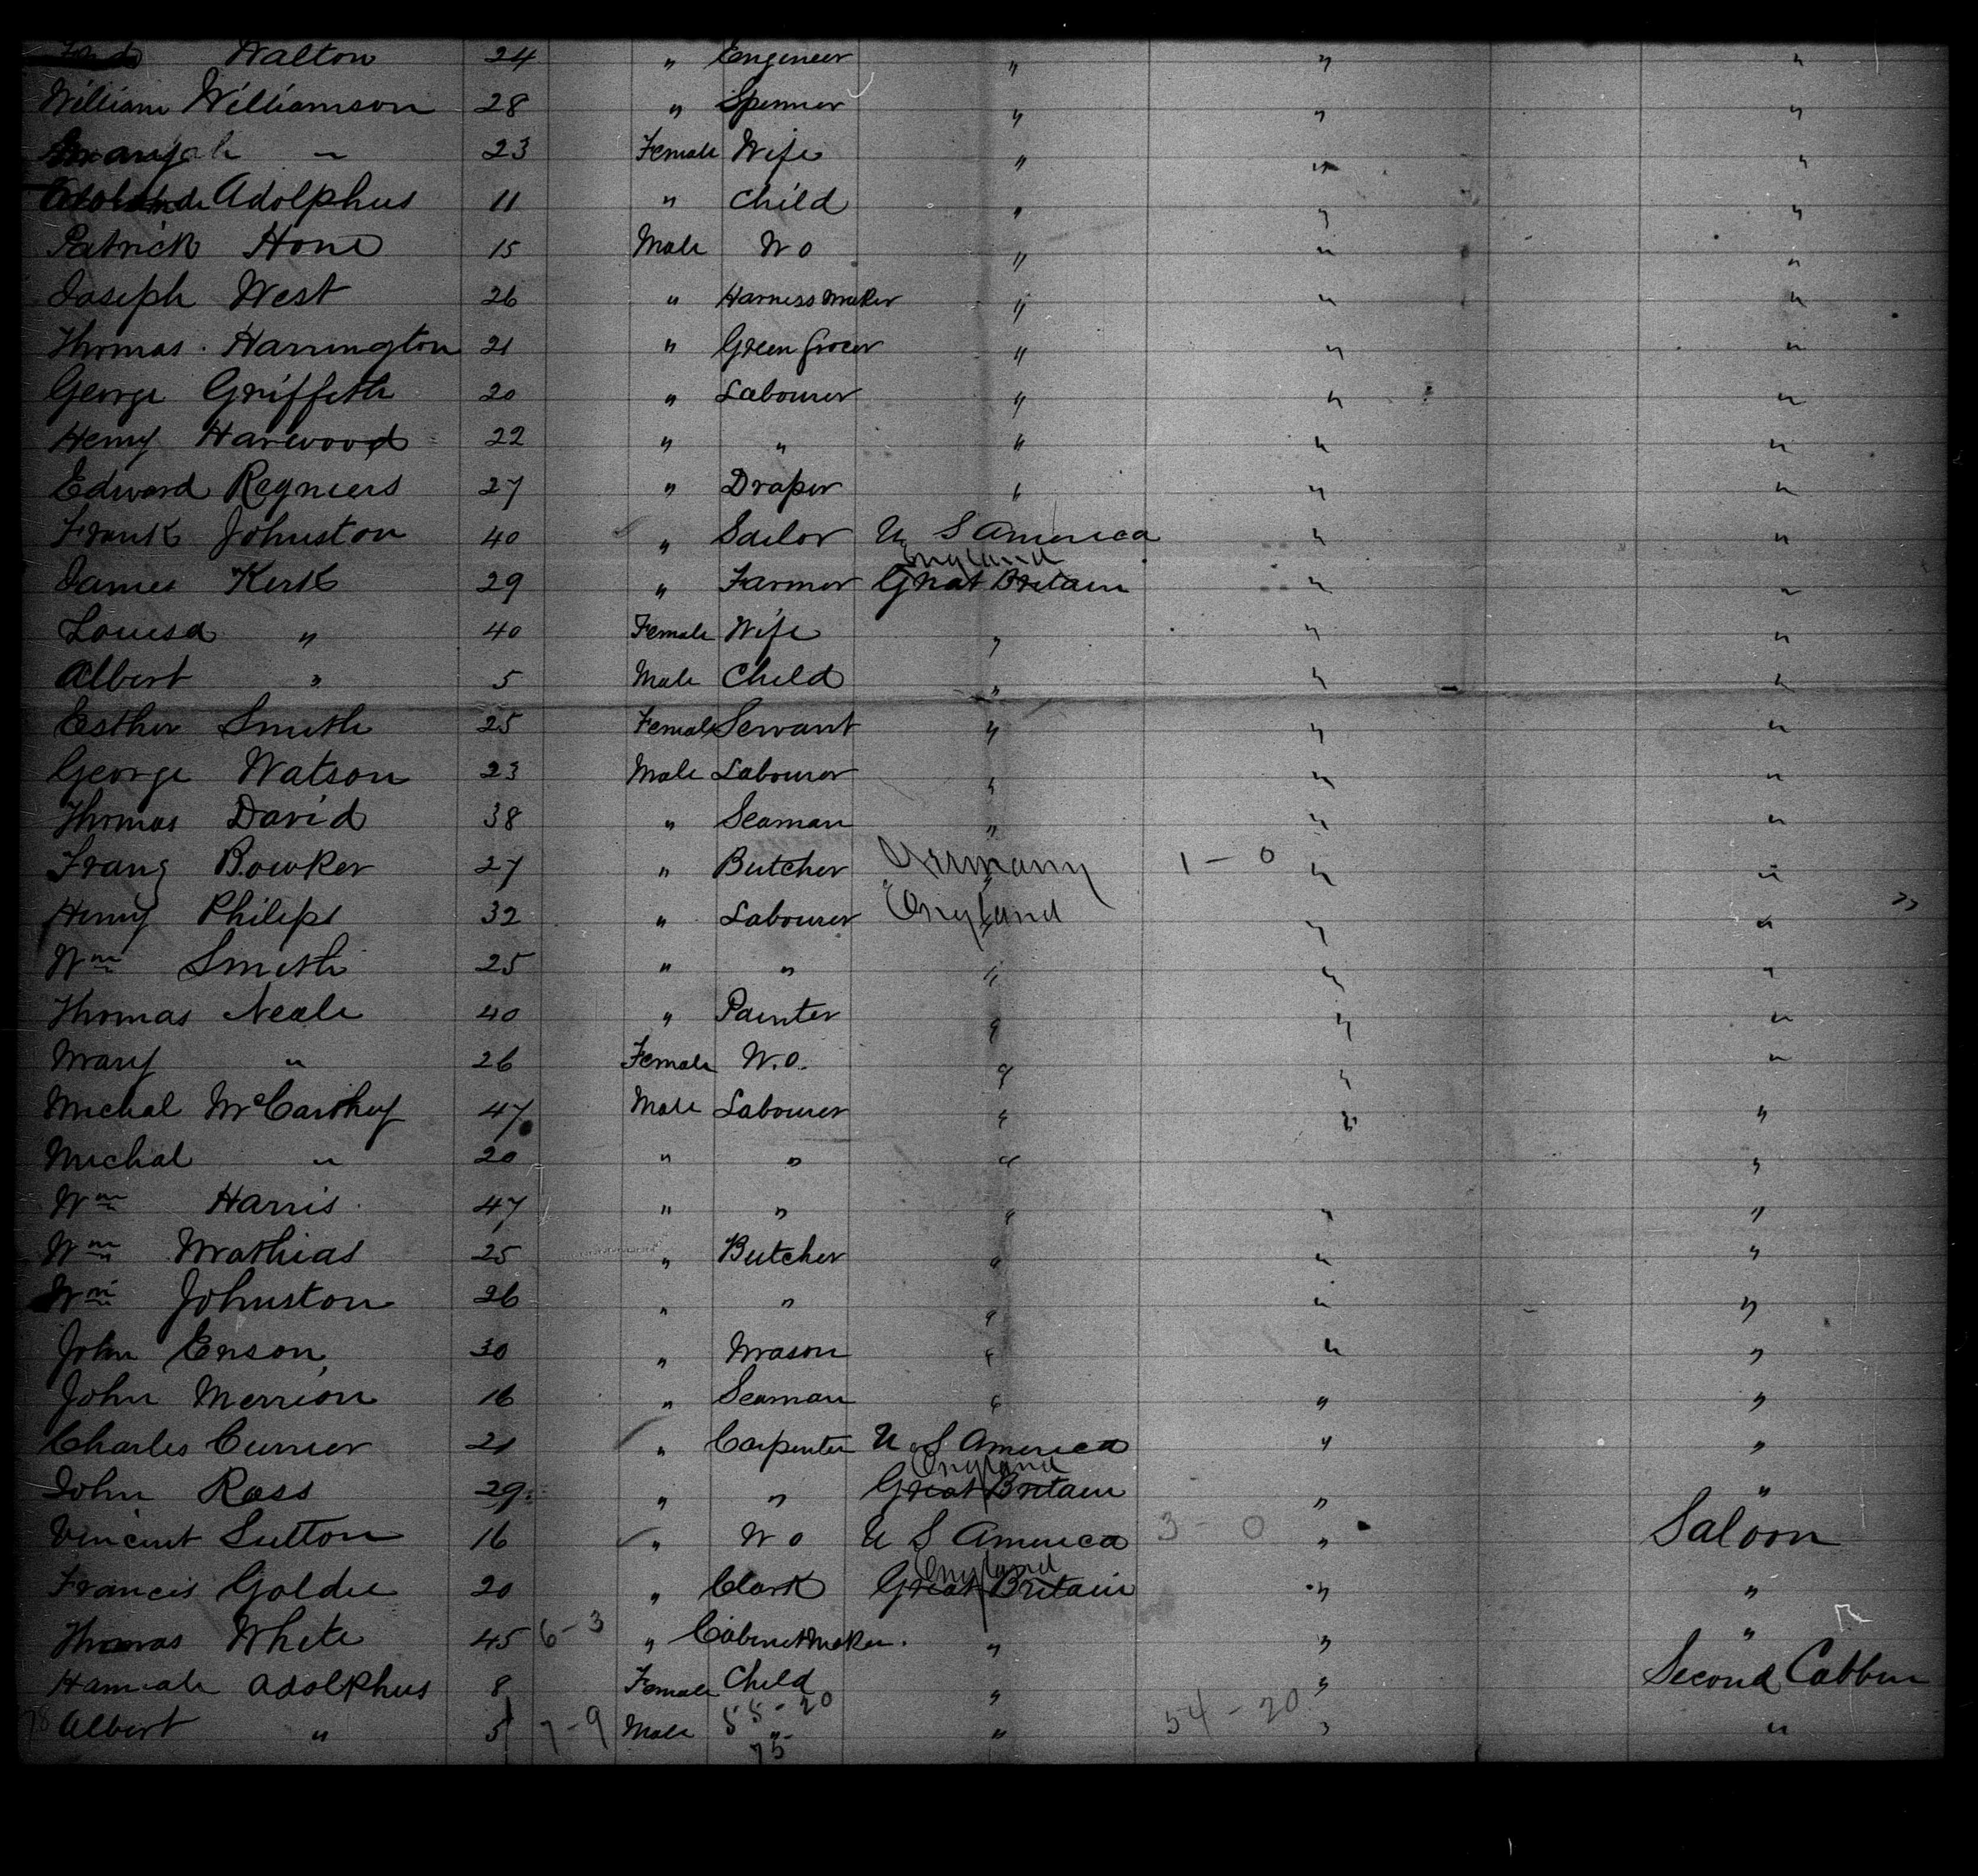 Walton 24 " Engineer " " "
William Williamson 28 " Spinner " " "
" 23 Female Wife " " "
Adolphus 11 " Child " " "
Patrick Hone 15 Male W O " " "
Joseph West 26 " Harness Maker " " "
Thomas Harrington 21 " Green Grocer " " "
George Griffeth 20 " Labourer " " "
Henry Harwood 22 " " " " "
Edward Regniers 27 " Draper " " "
Frank Johnston 40 " Sailor U S America " "
England
James Kerk 29 " Farmer Great Britain " "
Louisa " 40 Female Wife " " "
Albert " 5 Male Child " " "
Esther Smith 25 Female Servant " " "
George Watson 23 Male Labourer " " "
Thomas David 38 " Seaman " " "
Franz Bowker 27 " Butcher Germany 1 - 0 " "
Henry Philips 32 " Labourer England " "
Wm Smith 25 " " " " "
Thomas Neale 40 " Painter " " "
Mary " 26 Female W.O. " " "
Michal McCarthy 47 Male Labourer " " "
Michal " 20 " " " "
Wm Harris 47 " " " " "
Wm Mathias 25 " Butcher " " "
Wm Johnston 26 " " " " "
John Enson 30 " Mason " " "
John Merrion 16 " Seaman " " "
Charles Currier 21 " Carpenter U S America " "
England
John Ross 29 " " Great Britain " "
Vincent Sutton 16 " W O U S America 3 - 0 " Saloon
England
Francis Goldie 20 " Clark Great Britain " "
Thomas White 45 6-3 " Cabinet Maker. " " "
Hannah Adolphus 8 Female Child " " Second Cabbin
78 Albert " 5 7-9 Male 55-20 " " 54-20 " "
75